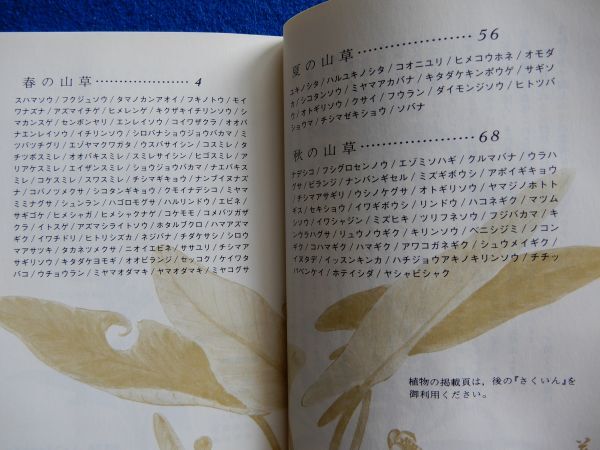 春の山草‥‥‥‥‥‥4
スハマソウ/フクジュソウ/タマノカンアオイ/フキノトウ/モイ
ワナズナ/アズマイチゲ/ヒメレンゲ/キクザキイチリンソウ/シ
マカンスゲ/センボンヤリ/エンレイソウ/コイワザクラ/オオバ
ナエンレイソウ/イチリンソウ/シロバナショウジョウバカマ/ミ
ツバツチグリ/エゾヤマクワガタ/ウスバサイシン/コスミレ/タ
チツボスミレ/オオバキスミレ/スミレサイシン/ヒゴスミレ/ア
リアケスミレ/エイザンスミレ/ショウジョウバカマ/ナエバキス
ミレ/コケスミレ/スワスミレ/チシマキンバイ/ナンブイヌナズ
ナ/コバノツメクサ/シコタンキョウ/クモイナデシコ/ミヤマ
ミミナグサ/シュンラン/ハゴロモグサ/ハルリンドウ/エビネ/
サギゴケ/ヒメシャガ/ヒメシャクナゲ/コケモモ/コメバツガザ
クラ/イトスゲ/アズマシライトソウ/ホタルブクロ/ハマアズマ
ギク/イワチドリ/ヒトリシズカ/ネジバナ/チダケサシ/シロウ
マアサツキ/タカネツメクサ/ニオイエビネ/サユリ/チシマア
サギリソウ/キタダケヨモギ/オオビランジ/セッコク/ケイワタ
バコ/ウチョウラン/ミヤマオダマキ/ヤマオダマキ/ミヤコグサ
夏の山草‥‥‥‥‥‥56
ユキノシタ/ハルユキノシタ/コオニユリ/ヒメコウホネ/オモダ
カ/シコタンソウ/ミヤマアカバナ/キタダケキンポウゲ/サギソ
ウ/オトギリソウ/クサイ/フウラン/ダイモンジソウ/ヒトツバ
ショウマ/チシマゼキショウ/ソバナ
秋の山草‥‥‥‥‥‥68
ナデシコ/フシグロセンノウ/エゾミソハギ/クルマバナ/ウラハ
グサ/ビランジ/ナンバンギセル/ミズギボウシ/アポイギキョウ
/チシマアサギリ/ウシノケグサ/オトギリソウ/ヤマジノホトト
ギス/セキショウ/イワギボウシ/リンドウ/ハコネギク/マツム
シソウ/イワシャジン/ミズヒキ/ツリフネソウ/フジバカマ/キ
クカラクサ/ハグサ/リュウノウギク/キリンソウ/ベニシジミ/ノコン
ギク/コハマギク/ハマギク/アワコガネギク/シュウメイギク/
イヌタデ/イッスンキンカ/ハチジョウアキノキリンソウ/チチッ
パベンケイ/ホテイシダ/ヤシャビシャク
植物の掲載頁は，後の『さくいん』を
御利用ください。